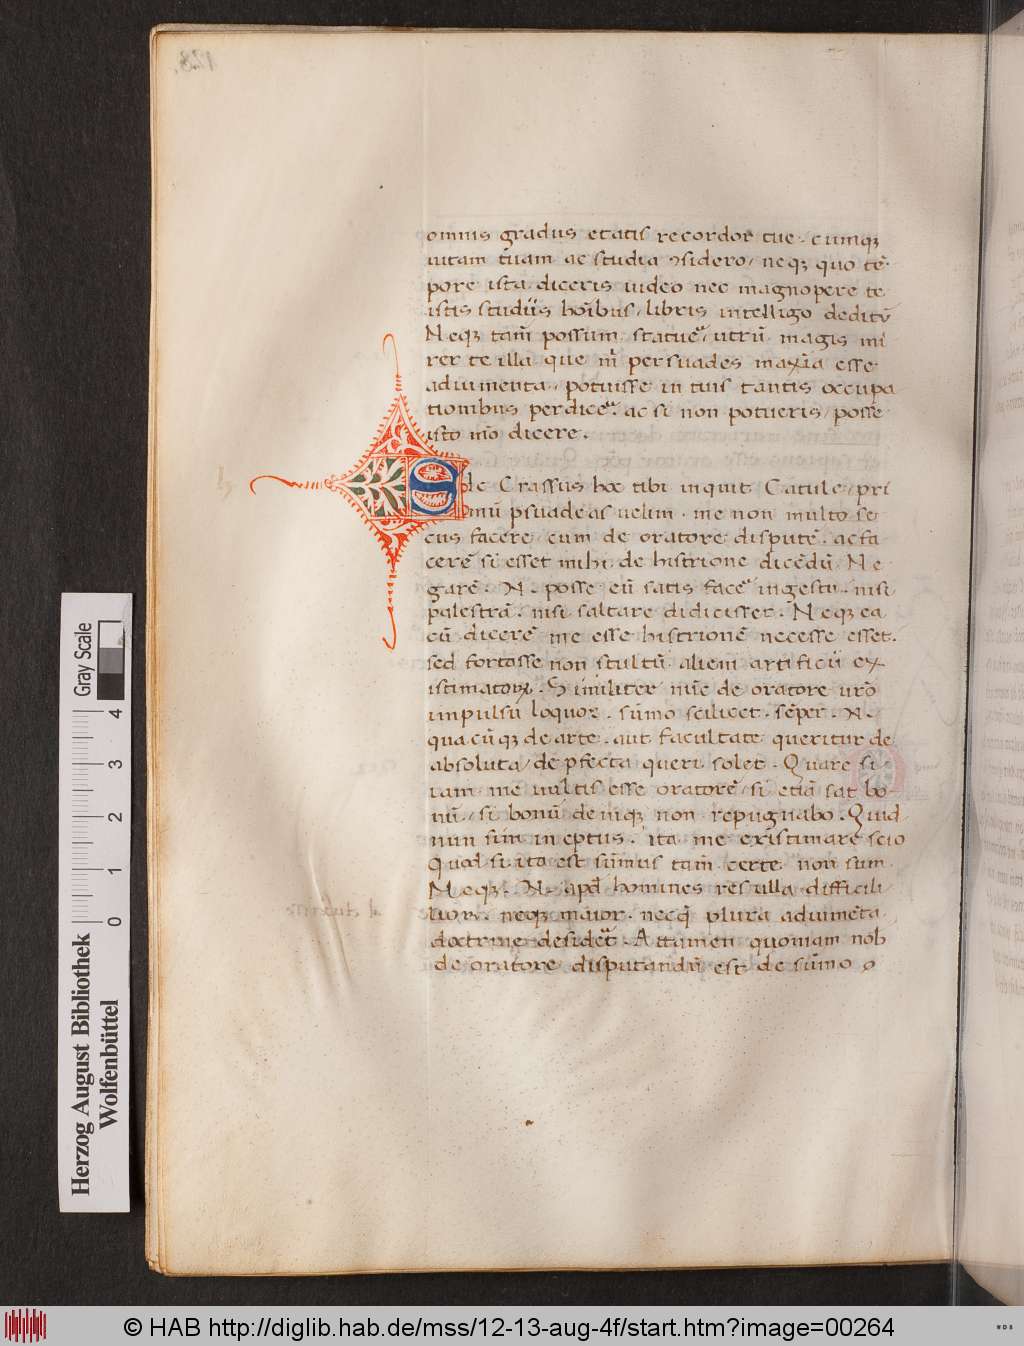 omnis gradus etatis recordor tue. cumqꝫ
uitam tuam ac studia ꝯsidero/ neqꝫ quo tē
pore ista diceris uideo nec magnopere te
istis studiis hoībus/ libris intelligo deditū
Neqꝫ tam̄ possum statueͬ/ utrū magis mi
rer te illa que m̄ persuades maxīa esse
adiumenta/ potuisse in tuis tantis occupa
tionibus perdiceͬ. ac si non potueris/ posse
isto mō dicere.
Hic Crassus hoc tibi inquit Catule/ pri
mū psuadeas uelim. me non multo se
cus facere cum de oratore disputē. ac fa
cerē si esset mihi de histrione dicēdū. Ne
garē. N. posse eū satis faceͬ in gestu. nisi
palestrā. nisi saltare didicisset. Neqꝫ ea
cū dicerē me esse histrionē necesse esset.
sed fortasse non stultū alieni artificii ex
istimatorē. Similiter nūc de oratore uro
impulsu loquor. sūmo scilicet. sēper. N.
quacūqꝫ de arte. aut facultate queritur de
absoluta/ de pfecta queri solet. Quare si
iam me uultis esse oratorē/ si etiā sat bo
nū/ si bonū deniqꝫ non repugnabo. Quid
nun sim ineptus. ita me existimare scio
Quod si ita est sūmus tam̄ certe non sum
Neqꝫ. N. apd̄ homines res ulla difficili
lior. neqꝫ maior. necq̄ plura adiumēta
doctrine desideͬt. Attamen quoniam nob̄
de oratore disputandū est de sūmo o
128.
Herzog August Bibliothek
Wolfenbüttel
Gray Scale
0 1 2 3 4
© HAB http://diglib.hab.de/mss/12-13-aug-4f/start.htm?image=00264